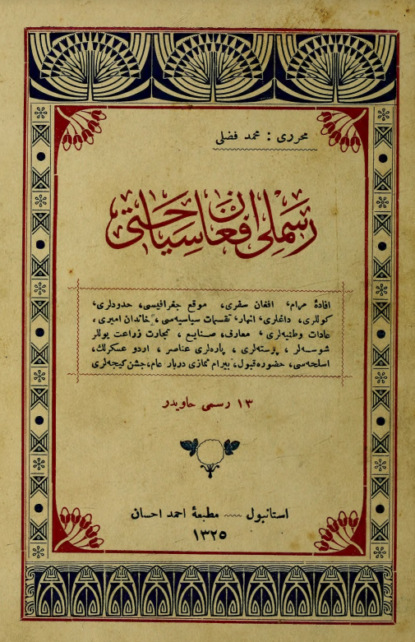 محرری : محمد فضلی
رسملی افغان سیاحتی
افادۀ مرام، افغان سفری، موقع جغرافیسی، حدودلری،
كوللری، داغلری، انهار، تقسیمات سیاسیه‌سی، خاندان امیری،
عادات وطنیه‌لری، معارف، صنایع، تجارت زراعت یوللر
شوسه‌لر، پوسته‌لری، پاره‌لری عناصر، اردو عسكرلك،
اسلحه‌سی، حضوره قبول، بیرام نمازی دربار عام، جشن كیجه‌لری
۱۳ رسمی حاویدر
استانبول — مطبعۀ احمد احسان
۱۳۲۵